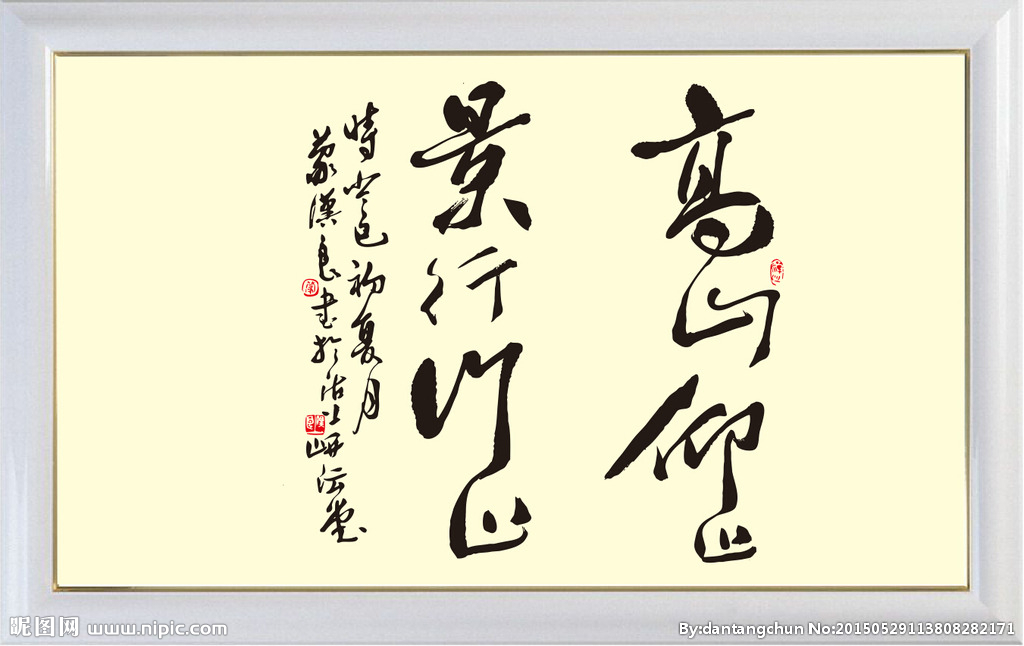 高山仰止
景行行止
時癸巳初夏月
漢良書於沽上堂
昵图网 www.nipic.com
By:dantangchun No:20150529113808282171